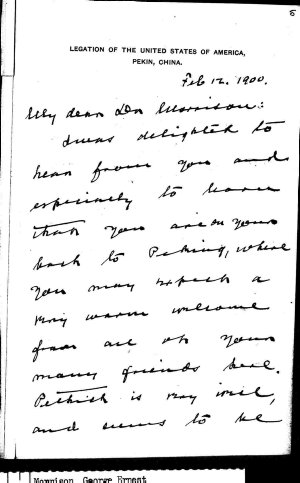 5
LEGATION OF THE UNITED STATES OF AMERICA,
PEKIN, CHINA.
Feb 12. 1900.
My dear Dr Morrison:
I was delighted to
hear from you and
especially to learn
that you are on your
back to Peking, where
you may expect a
very warm welcome
from all of your
many friends here.
Pethick is very well,
and seems to be
Morrison, George Ernest